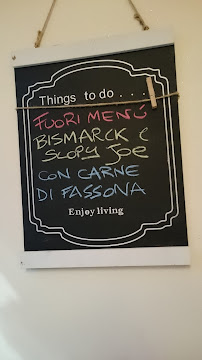 Things to do . . .
FUORI MENÚ
BISMARCK E
SLOPY JOE
CON CARNE
DI FASSONA
Enjoy living